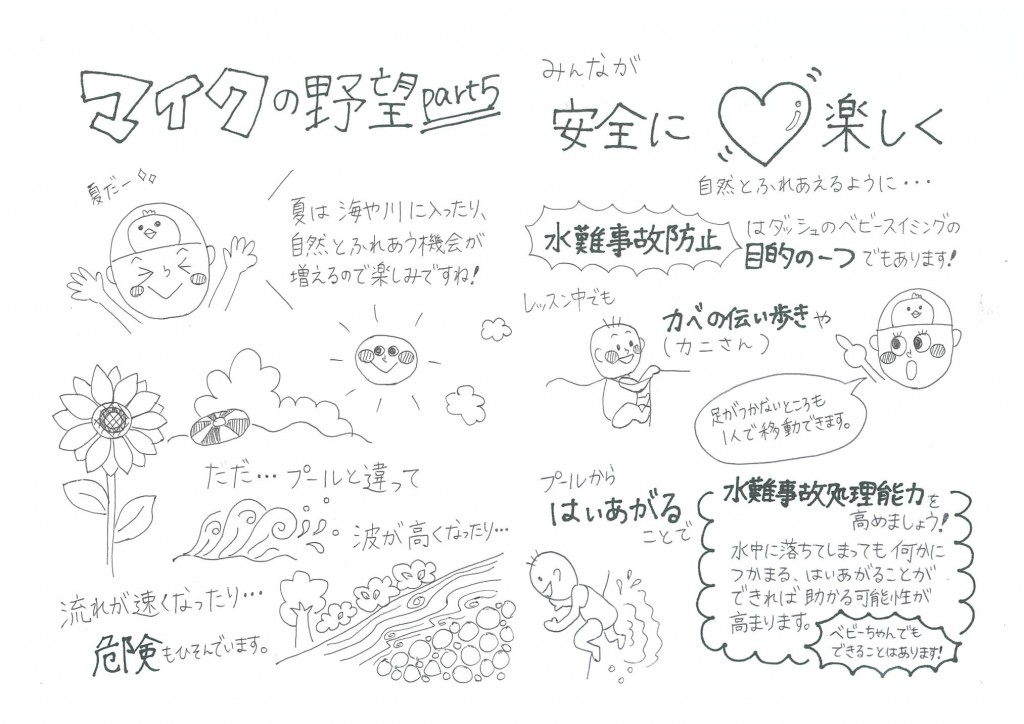 マイクの野望part5
夏だー
夏は海や川に入ったり、
自然とふれあう機会が
増えるので楽しみですね!
だだ…プールと違って
波が高くなったり…
流れが速くなったり…
危険もひそんでいます。
みんなが
安全に 楽しく
自然とふれあえるように・・・
水難事故防止はダッシュのベビースイミングの
目的の一つでもあります!
レッスン中でも
カベの伝い歩きや
(カニさん)
足がつかないところも
1人で移動できます。
プールから
はいあがる
ことで
水難事故処理能力を
高めましょう!
水中に落ちてしまっても何かに
つかまる、はいあがることが
できれば助かる可能性が
高まります。
ベビーちゃんでも
できることはあります!